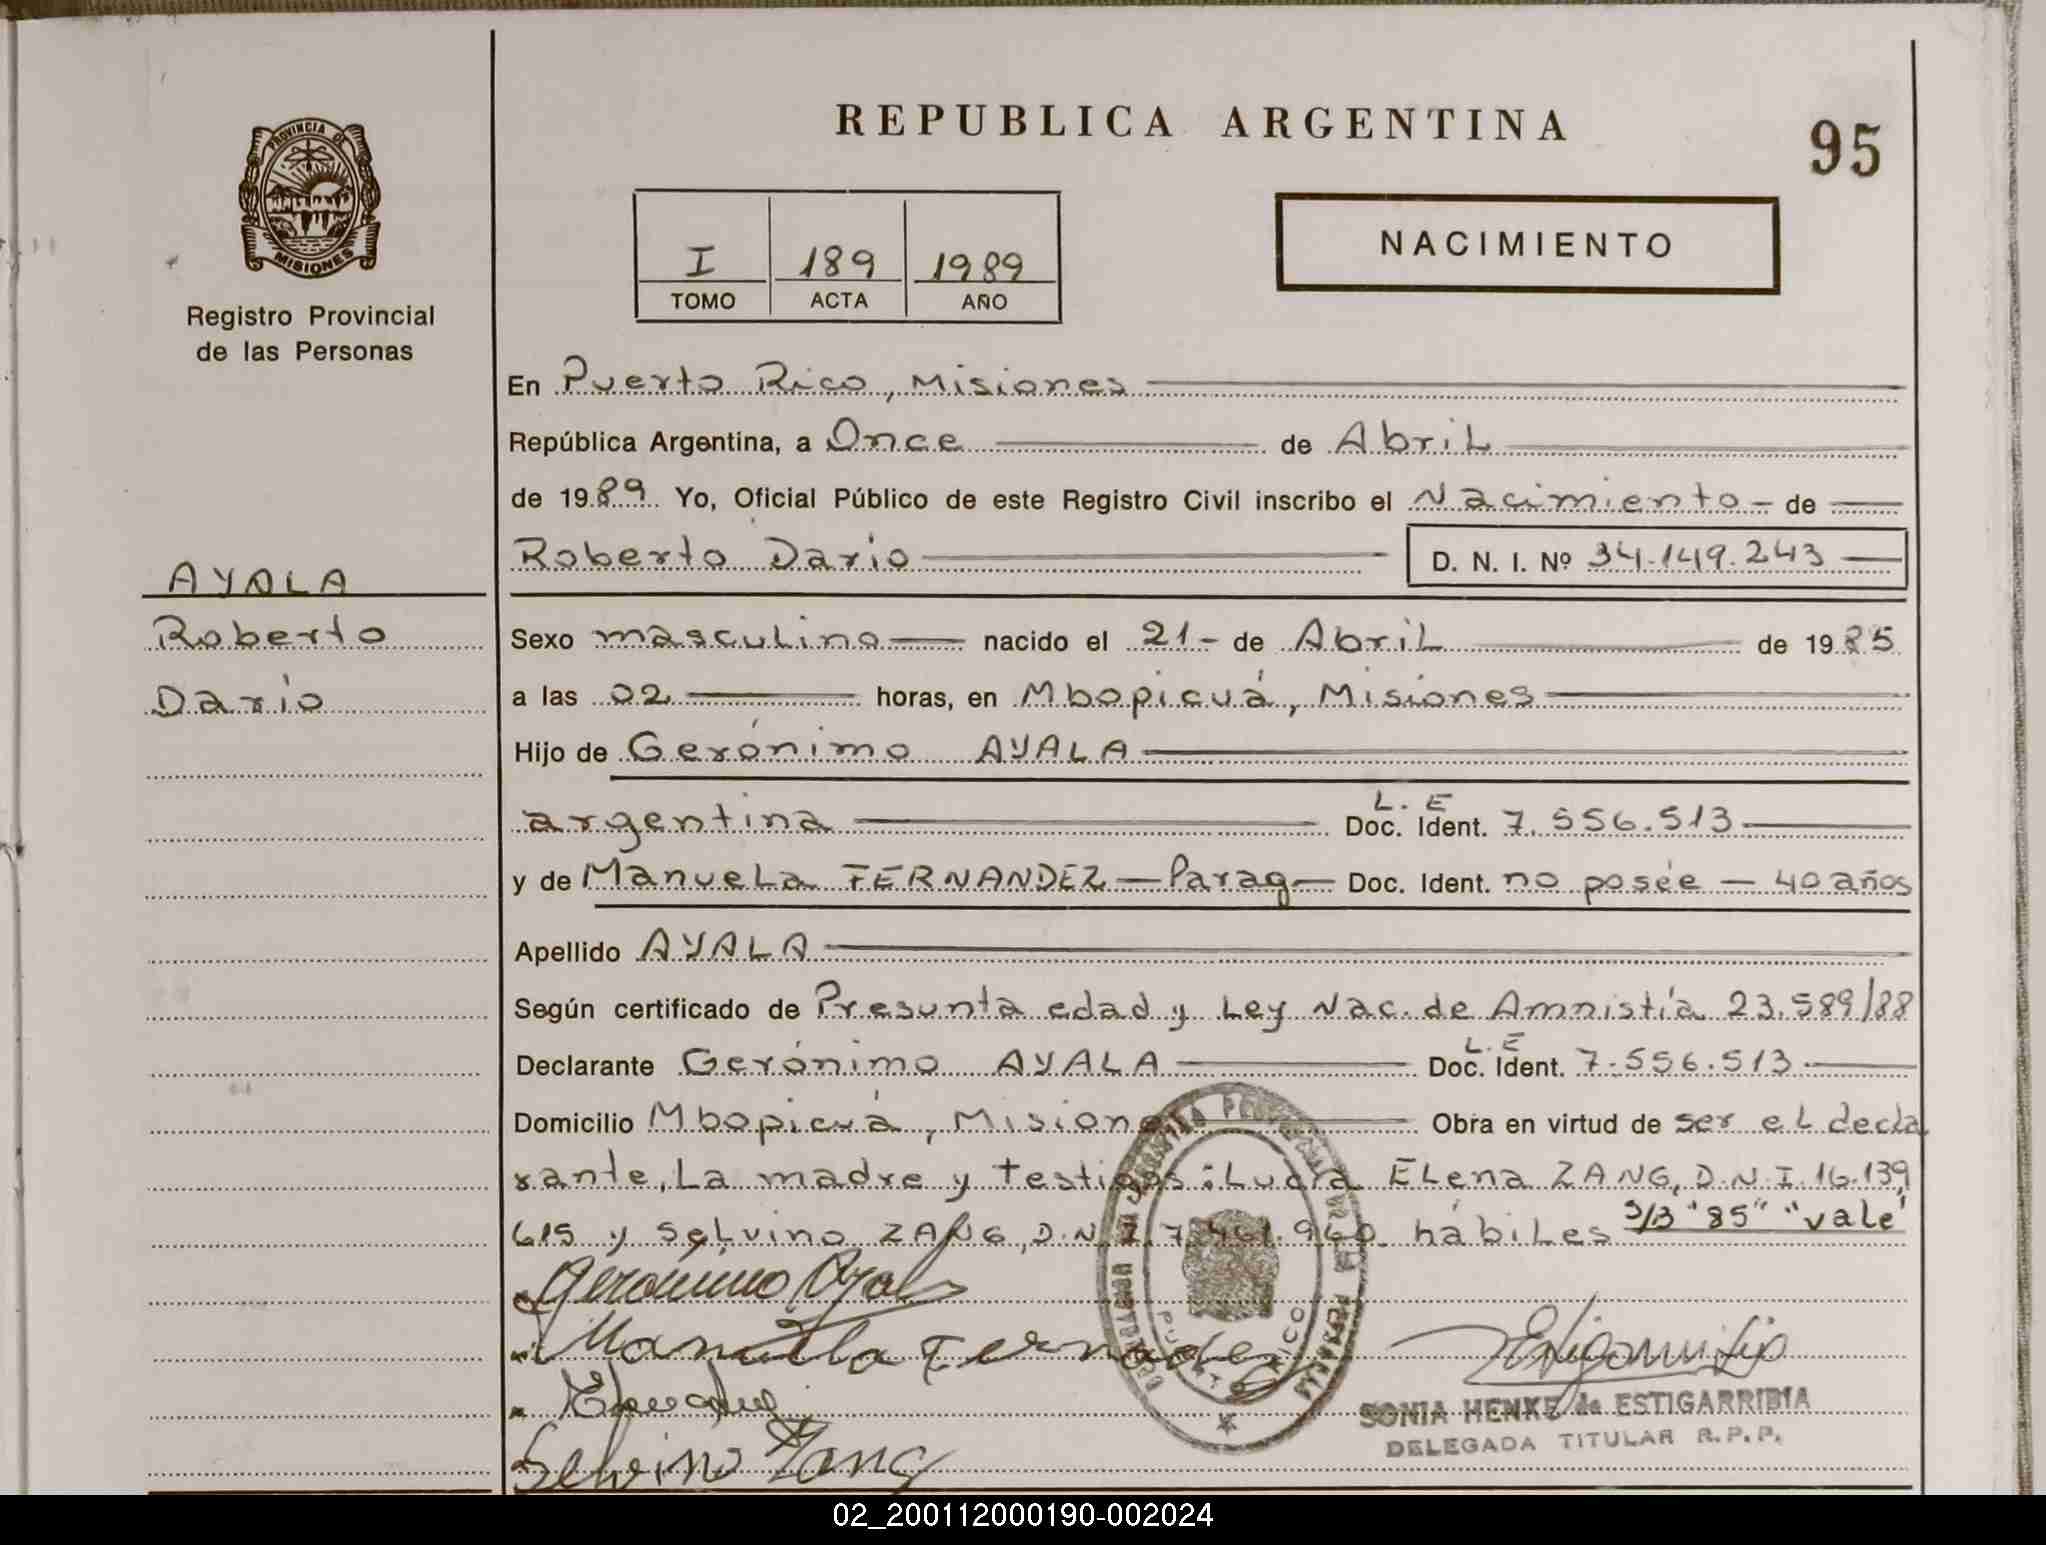 REPUBLICA ARGENTINA
95
PROVINCIA DE
MISIONES
Registro Provincial
de las Personas
I 189 1989
TOMO ACTA AÑO
NACIMIENTO
En Puerto Rico, Misiones
República Argentina, a Once de Abril
de 1989 Yo, Oficial Público de este Registro Civil inscribo el Nacimiento - de
Roberto Dario D. N. I. Nº 34.149.243
AYALA
Roberto
Dario
Sexo masculino nacido el 21 - de Abril de 1985
a las 02 horas, en Mbopicuá, Misiones
Hijo de Gerónimo AYALA
argentina L. E Doc. Ident. 7.556.513
y de Manuela FERNANDEZ - Parag - Doc. Ident. no posée - 40 años
Apellido AYALA
Según certificado de Presunta edad y Ley Nac. de Amnistía 23.589/88
Declarante Gerónimo AYALA L. E Doc. Ident. 7.556.513
Domicilio Mbopicuá, Misiones Obra en virtud de ser el decla
rante, La madre y testigos: Lucía Elena ZANG, D.N.I. 16.139
615 y Selvino ZANG, D.N.I. 7. .960 hábiles S/B "85" "vale"
Gerónimo Ayala
Manuela Fernandez
Selvino Zang
PUERTO RICO
SONIA HENKE de ESTIGARRIBIA
DELEGADA TITULAR R.P.P.
02_200112000190-002024